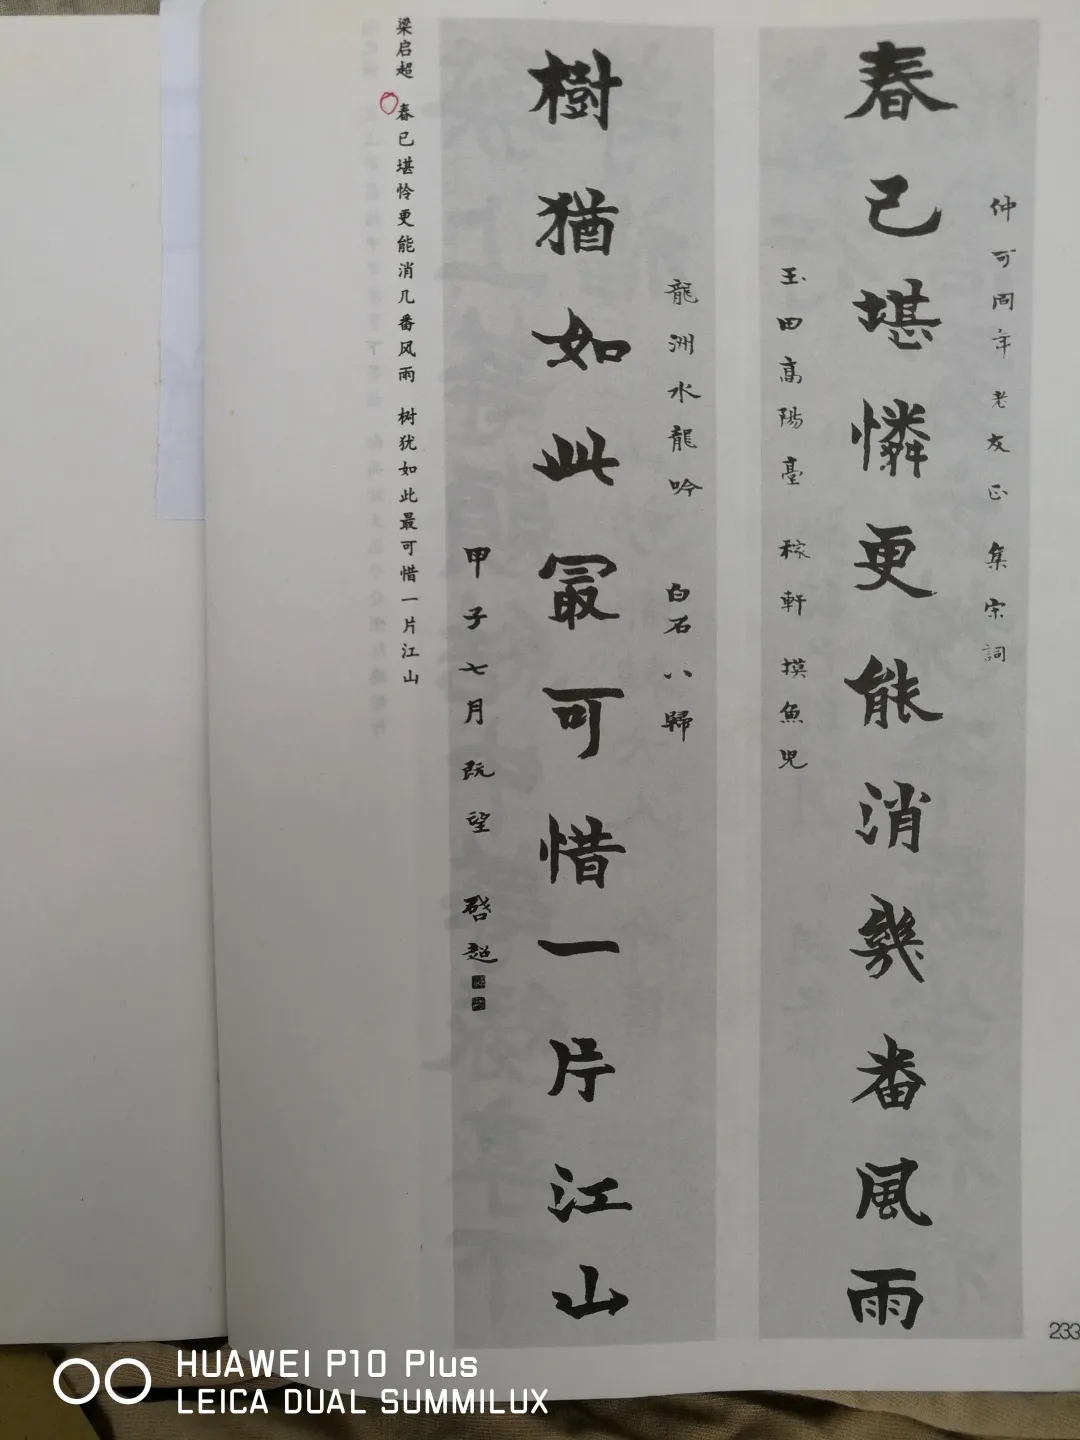 仲可同年老友正 集宋詞
春已堪憐更能消幾番風雨
玉田高陽臺 稼軒摸魚兒
龍洲水龍吟 白石八歸
樹猶如此最可惜一片江山
甲子七月既望 啓超
梁启超 春已堪怜更能消几番风雨 树犹如此最可惜一片江山
233
HUAWEI P10 Plus
LEICA DUAL SUMMILUX